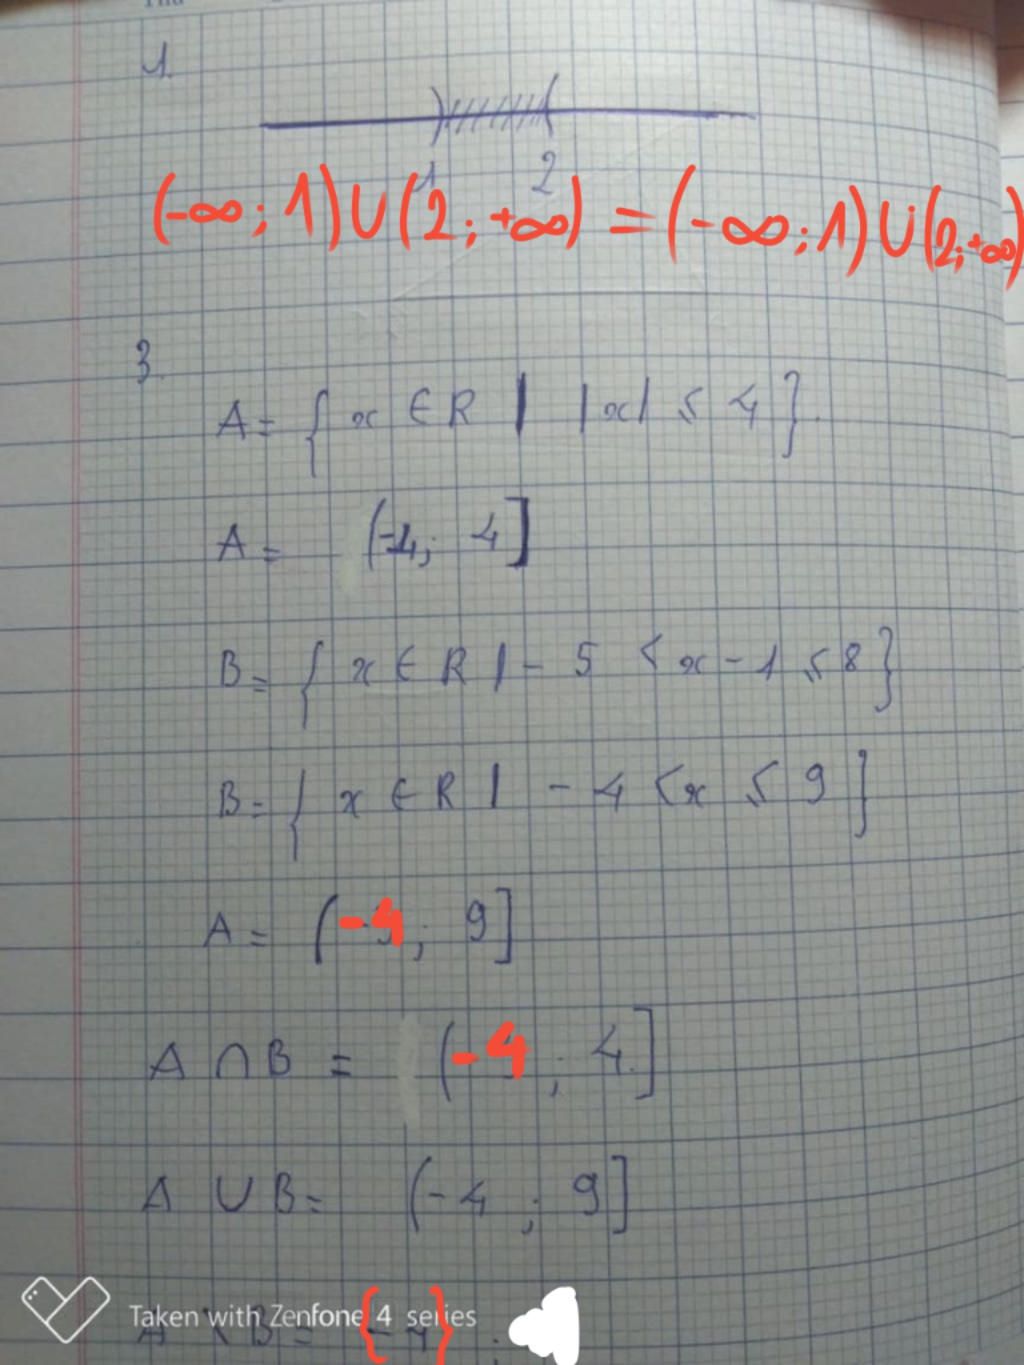 1.
1 2
(-∞; 1) ∪ (2; +∞) = (-∞; 1) ∪ (2; +∞)
3.
A = { x ∈ R | |x| ≤ 4 }.
A = (-4; 4]
B = { x ∈ R | - 5 < x - 1 ≤ 8 }
B = { x ∈ R | - 4 < x ≤ 9 }
A = (-4; 9]
A ∩ B = (-4; 4]
A ∪ B = (-4; 9]
Taken with Zenfone 4 series
A \ B = {-4}